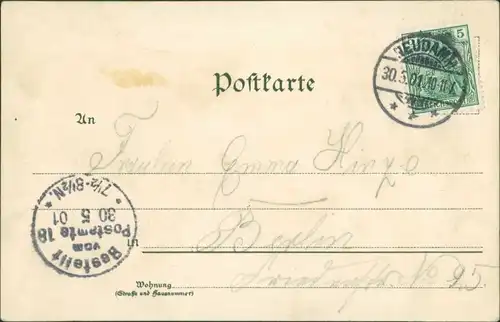 5
NEUDAMM
30.5.01.10-11V.
Postkarte
An
Fräulein Emma Hinze
7½-8½N.
30 5 01
Bestellt
vom
Postamte 18
in Berlin
Friedrichstr No 95
Wohnung
(Straße und Hausnummer)